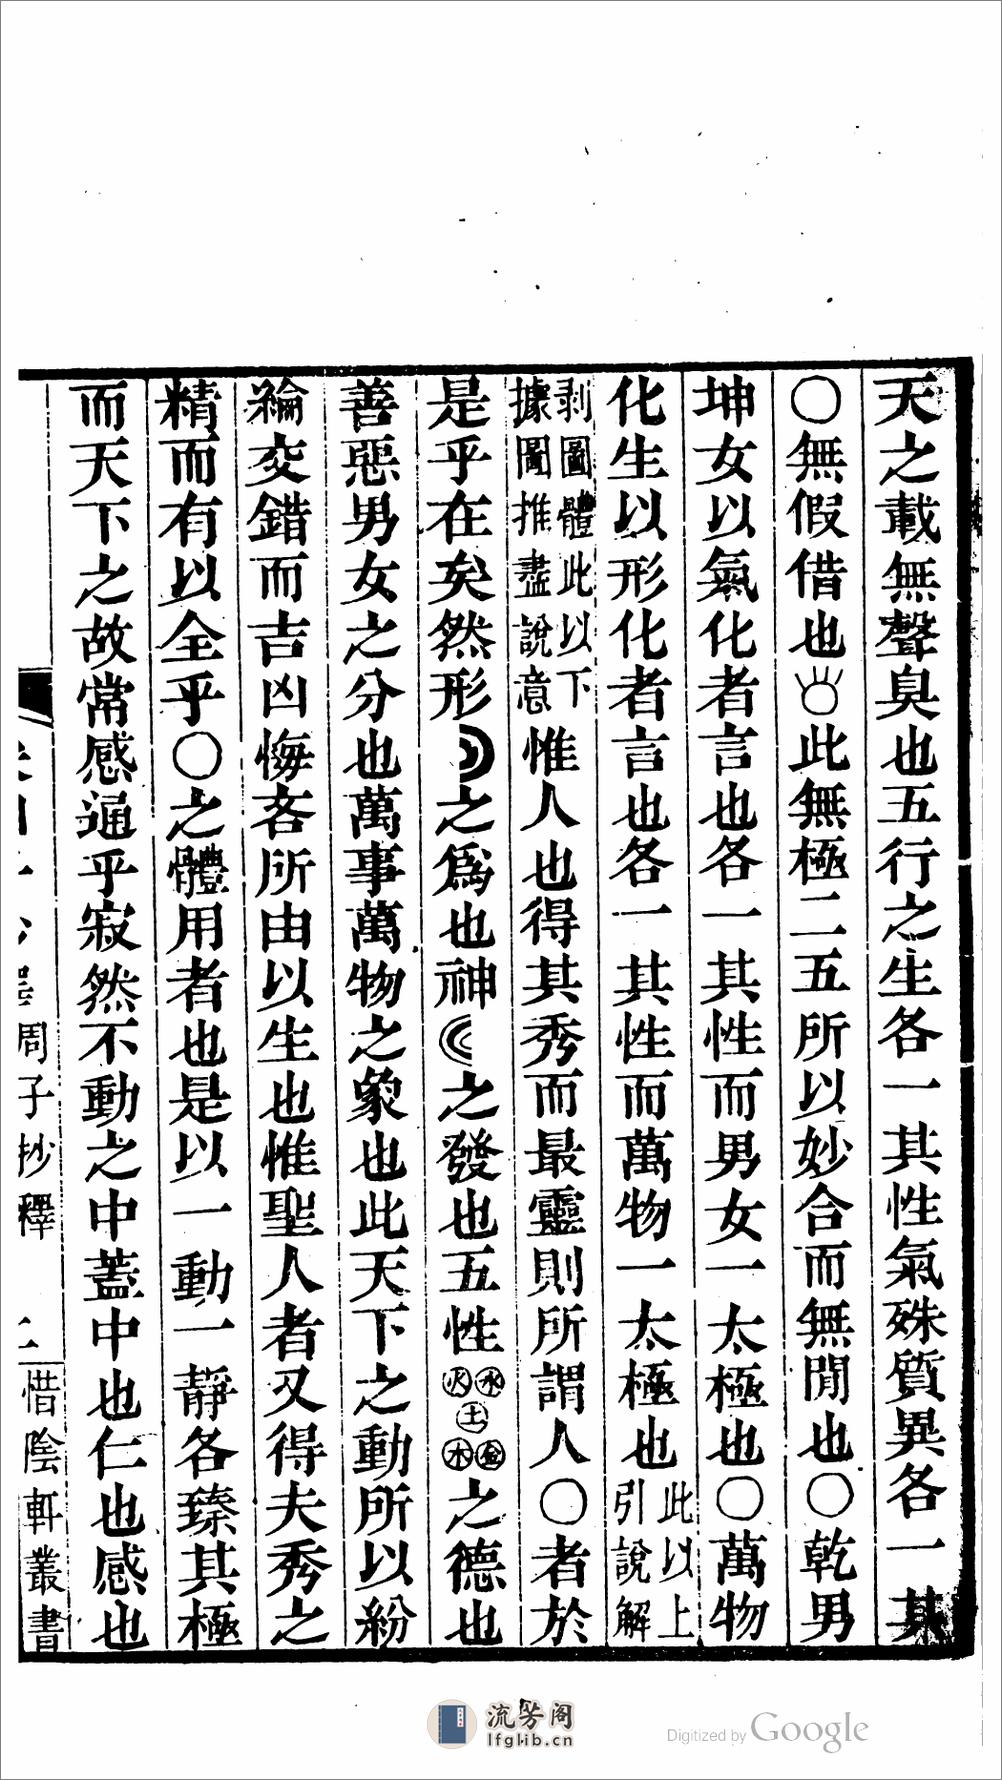 天之載無聲臭也五行之生各一其性氣殊質異各一其
〇無假借也此無極二五所以妙合而無閒也〇乾男
坤女以氣化者言也各一其性而男女一太極也〇萬物
化生以形化者言也各一其性而萬物一太極也此以上引說解
剥圖體此以下據圖推盡說意惟人也得其秀而最靈則所謂人〇者於
是乎在矣然形之爲也神之發也五性水火土金木之德也
善惡男女之分也萬事萬物之象也此天下之動所以紛
綸交錯而吉凶悔吝所由以生也惟聖人者又得夫秀之
精而有以全乎〇之體用者也是以一動一靜各臻其極
而天下之故常感通乎寂然不動之中蓋中也仁也感也
周子抄釋
惜陰軒叢書
流芳阁
lfglib.cn
Digitized by Google